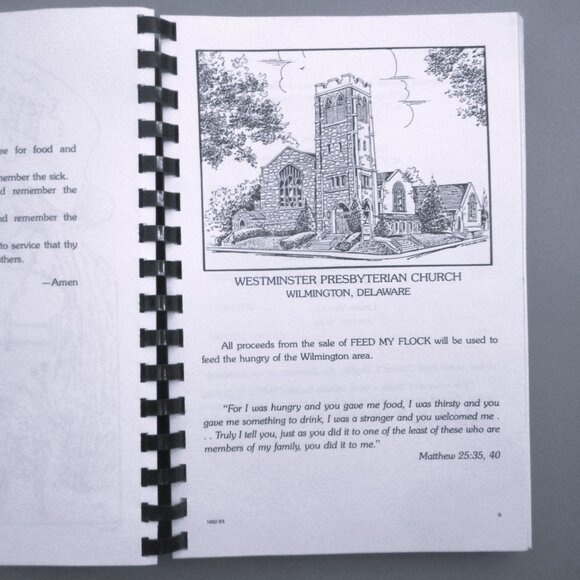 ee for food and
member the sick.
d remember the
nd remember the
to service that thy
others.
—Amen
WESTMINSTER PRESBYTERIAN CHURCH
WILMINGTON, DELAWARE
All proceeds from the sale of FEED MY FLOCK will be used to
feed the hungry of the Wilmington area.
"For I was hungry and you gave me food, I was thirsty and you
gave me something to drink, I was a stranger and you welcomed me .
. . Truly I tell you, just as you did it to one of the least of these who are
members of my family, you did it to me."
Matthew 25:35, 40